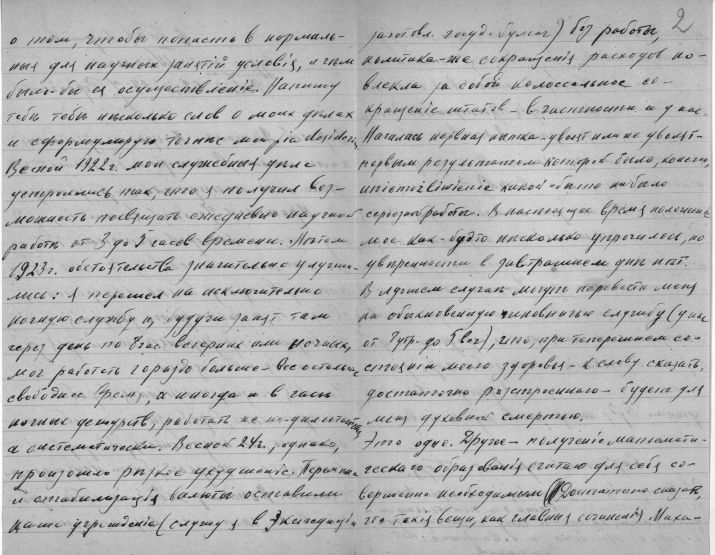 о том, чтобы попасть в нормаль-
ныя для научных занятій условія, и чем
было-бы ея осуществленіе. Напишу
тебѣ тебѣ нѣсколько слов о моих дѣлах
и сформулирую точнѣе мои pia desideria.
Весной 1922 г. мои служебныя дѣла
устроились так, что я получил воз-
можность посвящать ежедневно научной
работѣ от 3 до 5 часов времени. Лѣтом
1923 г. обстоятельства значительно улучши-
лись: я перешел на исключительно
ночную службу и, будучи занят там
через день по 8 час вечерних или ночных,
мог работать гораздо больше – все остальное
свободное время, а иногда и в часы
ночных дежурств, работать не по-дилетантски,
а систематически. Весной 24 г., однако,
произошло рѣзкое ухудшеніе.
и стабилизація валюты оставили
наше учрежденіе (служу я в Экспедиціи
2
заготовл. госуд. бумаг) без работы,
политика-же сокращенія расходов по-
влекла за собой колоссальное со-
кращеніе штатов – в частности и у нас.
Началась нервная пытка – уволят или не уволят –
первым результатом которой было, конечно,
какой-бы то ни было
серьезной работы. В настоящее время положеніе
мое как-будто нѣсколько упрочилось, но
увѣренности в завтрашнем днѣ нѣт.
В лучшем случаѣ могут перевести меня
на обыкновенную чиновничью службу (у нас
от 9 утр. до 5 веч), что, при теперешнем со-
стояніи моего здоровья – к слову сказать,
достаточно разстроеннаго – будет для
меня духовной смертью.
Это одно. Другое – полученіе математи-
ческаго образованія считаю для себя со-
вершенно необходимым. Достаточно сказать,
что такія вещи, как главныя сочиненія Маха-